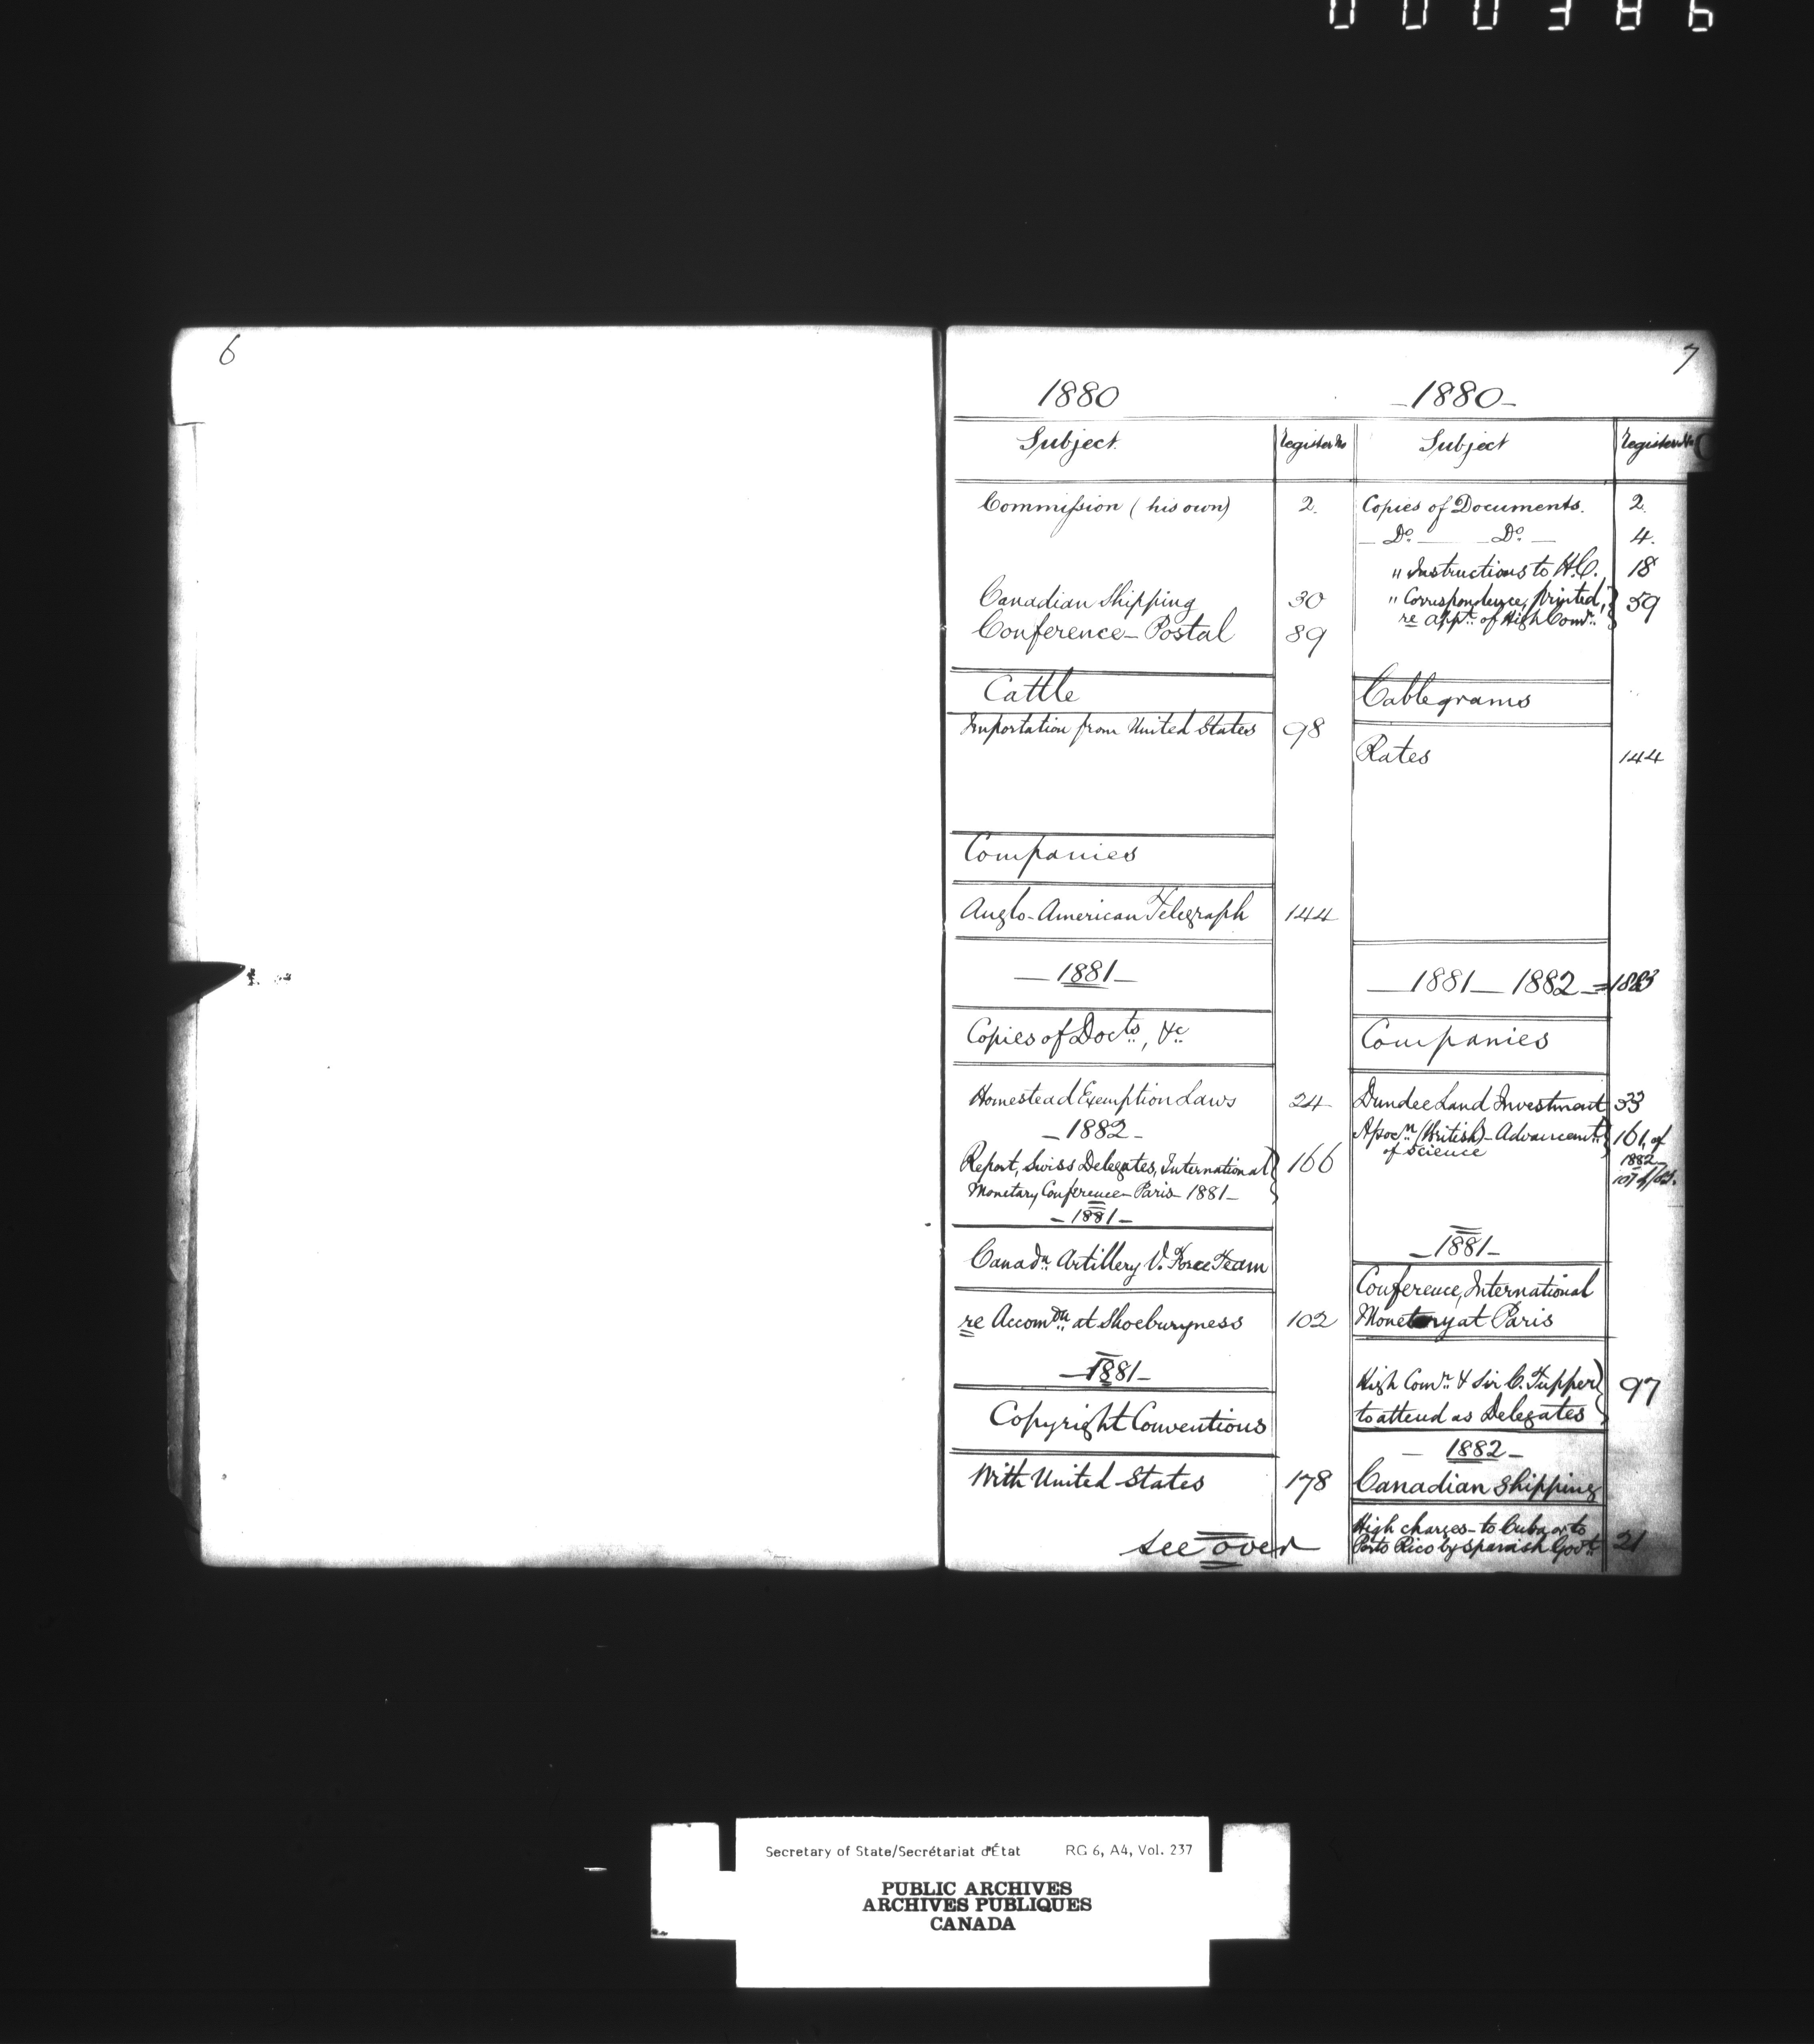 000386
6
7
1880
Subject. Register No
Commission (his own) 2.
Canadian Shipping 30
Conference - Postal 89
Cattle
Importation from United States 98
Companies
Anglo-American Telegraph 144
— 1881 —
Copies of Docts, &c
Homestead Exemption Laws 24
— 1882 —
Report, Swiss Delegates, International } 166
Monetary Conference - Paris 1881 —
— 1881 —
Canadn Artillery V. Force Team
re Accomdn at Shoeburyness 102
— 1881 —
Copyright Conventions
With United States 178
see over
— 1880 —
Subject Register No C
Copies of Documents. 2.
— Do — — Do — 4.
" Instructions to H.C. 18
" Correspondence, printed, } 59
re appt of High Comr
Cablegrams
Rates 144
— 1881 — 1882 — = 1883
Companies
Dundee Land Investment 33
Assocn (British) - Advancemt } 161 of
of Science
1882
107 of /83.
— 1881 —
Conference, International
Monetary at Paris
High Comr & Sir C. Tupper } 97
to attend as Delegates
— 1882 —
Canadian Shipping
High charges - to Cuba or to
Porto Rico by Spanish Govt 21
Secretary of State/Secrétariat d'État RG 6, A4, Vol. 237
PUBLIC ARCHIVES
ARCHIVES PUBLIQUES
CANADA